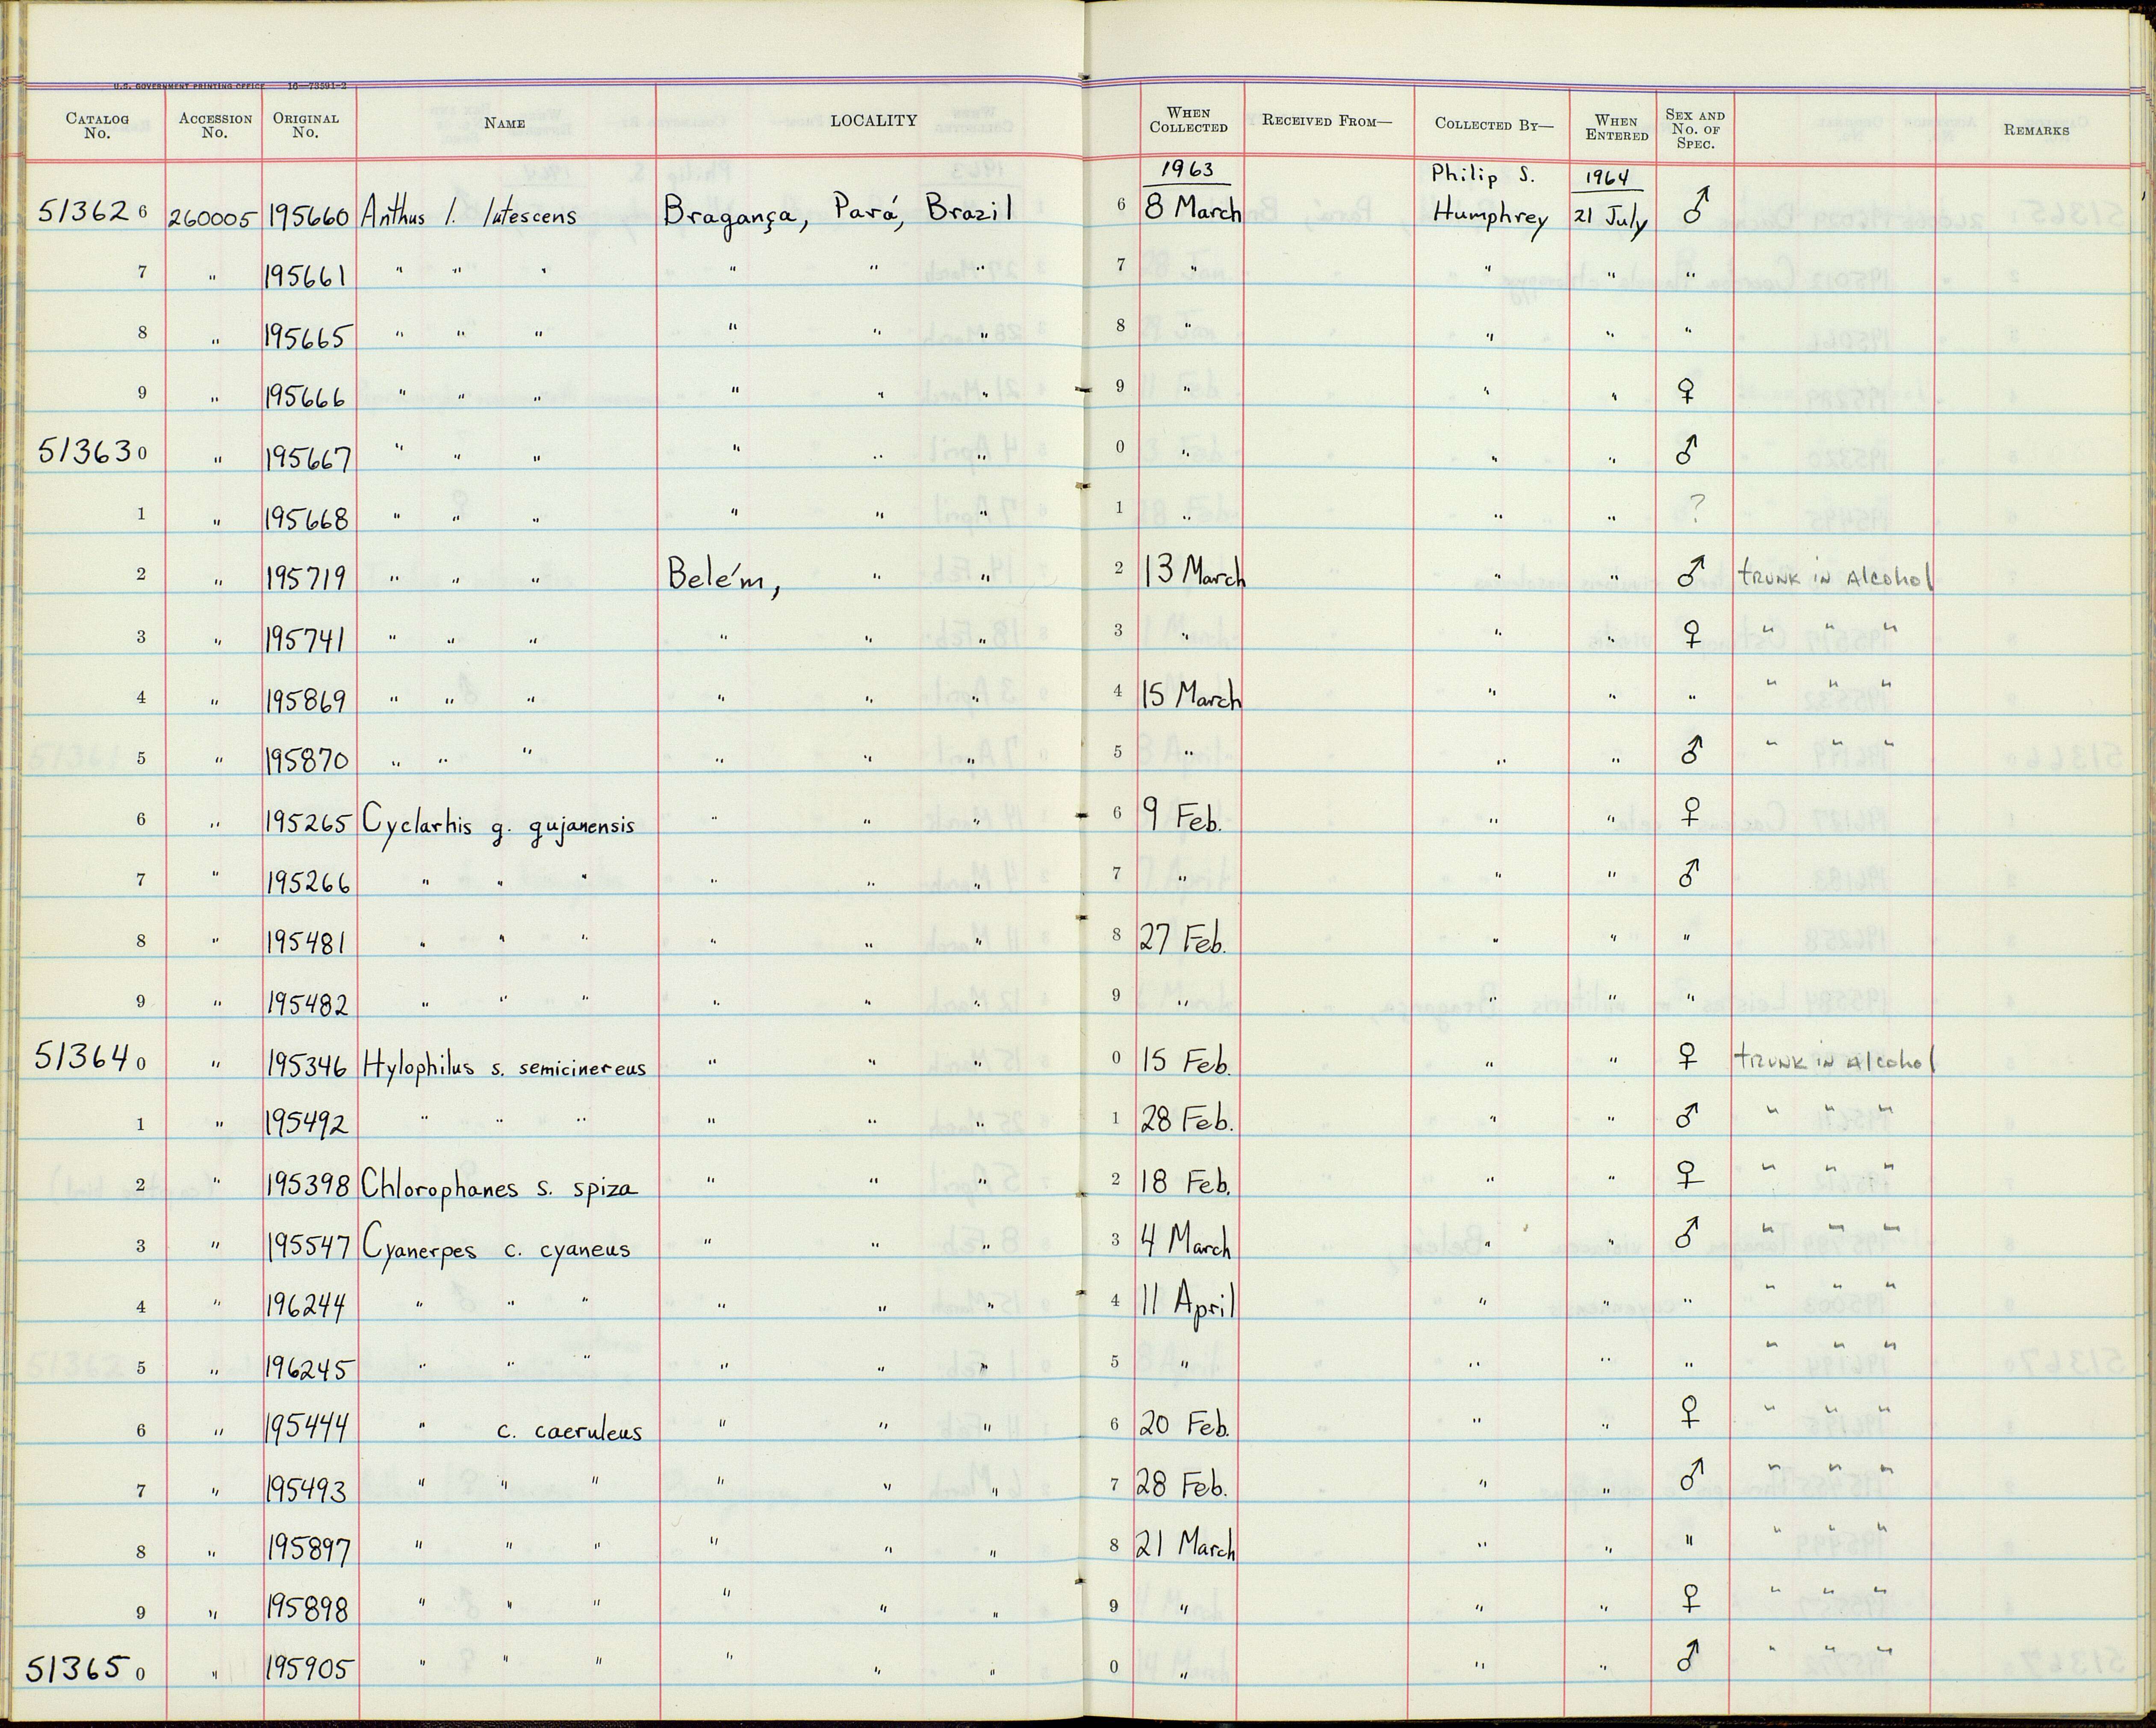 U.S. GOVERNMENT PRINTING OFFICE 16—73591-2
CATALOG No. ACCESSION No. ORIGINAL No. NAME LOCALITY WHEN COLLECTED RECEIVED FROM— COLLECTED BY— WHEN ENTERED SEX AND No. OF SPEC. REMARKS
1963 Philip S. 1964
51362 6 260005 195660 Anthus l. lutescens Bragança, Pará, Brazil 6 8 March Humphrey 21 July ♂
7 " 195661 " " " " " " 7 " " " "
8 " 195665 " " " " " " 8 " " " "
9 " 195666 " " " " " " 9 " " " ♀
51363 0 " 195667 " " " " " " 0 " " " ♂
1 " 195668 " " " " " " 1 " " " ?
2 " 195719 " " " Belém, " " 2 13 March " " ♂ trunk in alcohol
3 " 195741 " " " " " " 3 " " " ♀ " " "
4 " 195869 " " " " " " 4 15 March " " " " " "
5 " 195870 " " " " " " 5 " " " ♂ " " "
6 " 195265 Cyclarhis g. gujanensis " " " 6 9 Feb. " " ♀
7 " 195266 " " " " " " 7 " " " ♂
8 " 195481 " " " " " " 8 27 Feb. " " "
9 " 195482 " " " " " " 9 " " " "
51364 0 " 195346 Hylophilus s. semicinereus " " " 0 15 Feb. " " ♀ trunk in alcohol
1 " 195492 " " " " " " 1 28 Feb. " " ♂ " " "
2 " 195398 Chlorophanes s. spiza " " " 2 18 Feb. " " ♀ " " "
3 " 195547 Cyanerpes c. cyaneus " " " 3 4 March " " ♂ " " "
4 " 196244 " " " " " " 4 11 April " " " " " "
5 " 196245 " " " " " " 5 " " " " " " "
6 " 195444 " c. caeruleus " " " 6 20 Feb. " " ♀ " " "
7 " 195493 " " " " " " 7 28 Feb. " " ♂ " " "
8 " 195897 " " " " " " 8 21 March " " " " " "
9 " 195898 " " " " " " 9 " " " ♀ " " "
51365 0 " 195905 " " " " " " 0 " " " ♂ " " "